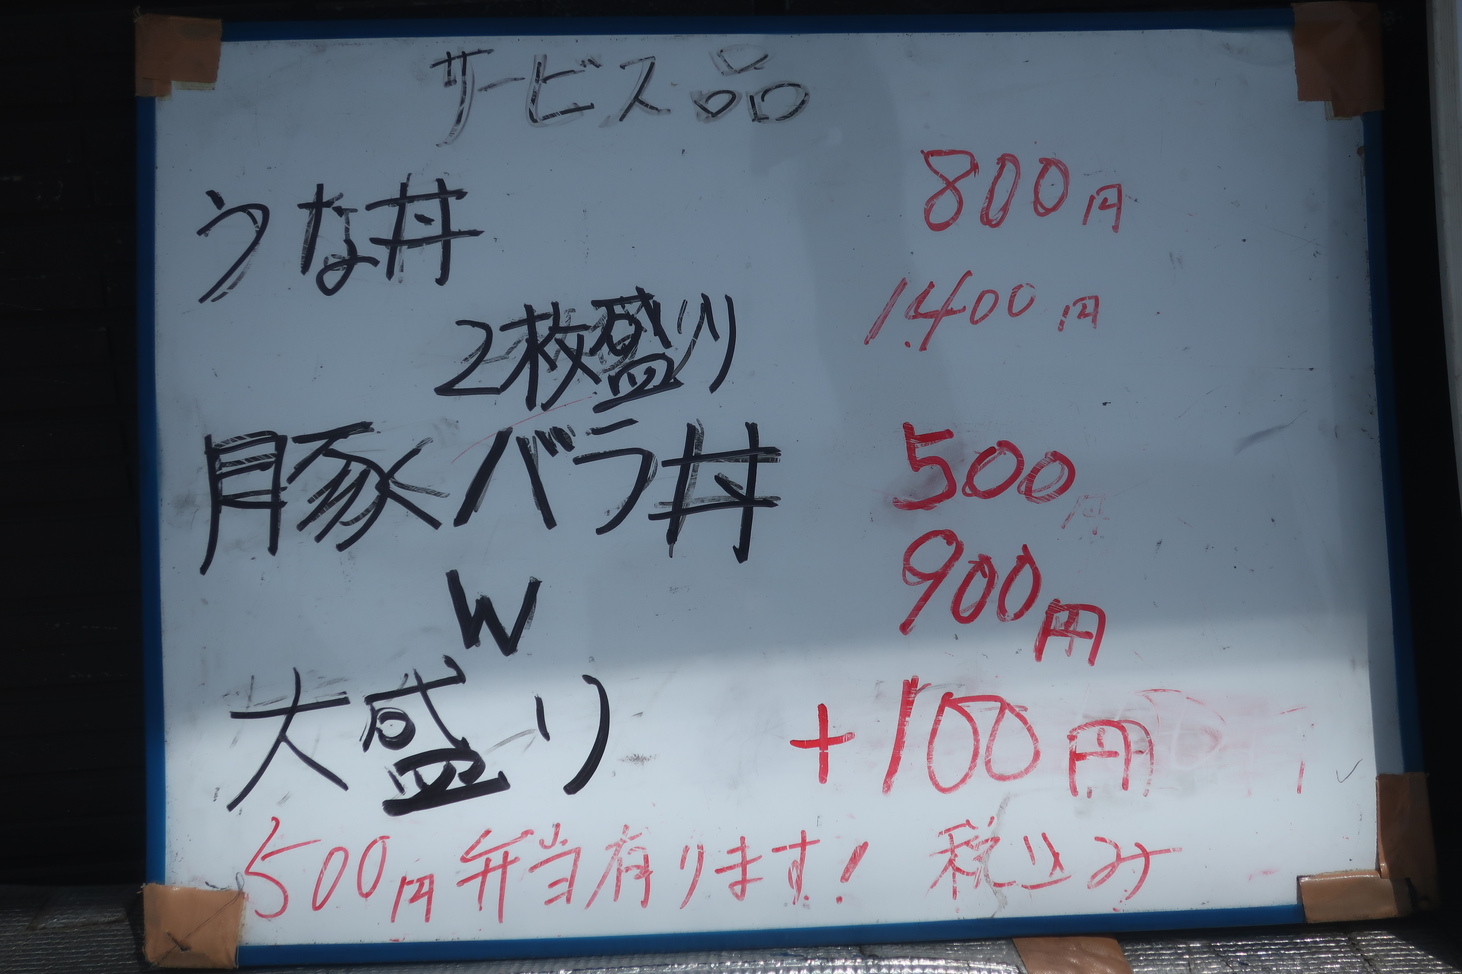 サービス品
うな丼 800円
2枚盛り 1.400円
豚バラ丼 500円
W 900円
大盛り +100円
500円弁当有ります! 税込み